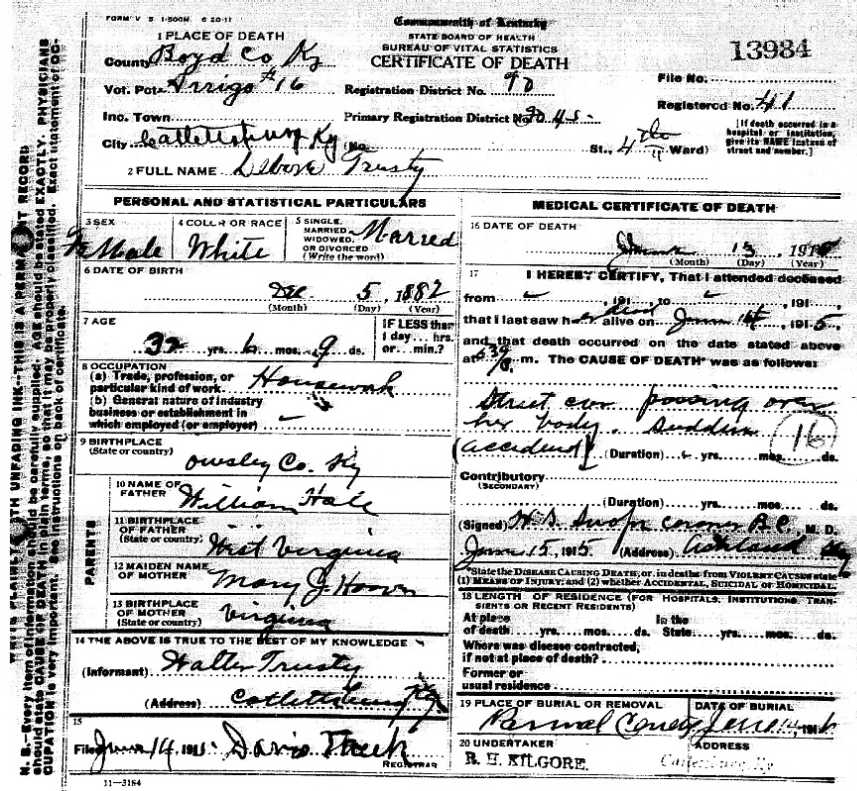 FORM V S 1-500M 6 20-11
Commonwealth of Kentucky
STATE BOARD OF HEALTH
BUREAU OF VITAL STATISTICS
CERTIFICATE OF DEATH
13984
1 PLACE OF DEATH
County Boyd Co, Ky
Vot. Pct. #16
Registration District No. 90
File No.
Inc. Town
Primary Registration District No. 2045
Registered No. 41
City Catlettsburg Ky (No. St., 4th Ward)
[If death occurred in a hospital or institution, give its NAME instead of street and number.]
2 FULL NAME Trusty
PERSONAL AND STATISTICAL PARTICULARS
3 SEX
Female
4 COLOR OR RACE
White
5 SINGLE, MARRIED, WIDOWED, OR DIVORCED (Write the word)
Married
6 DATE OF BIRTH
Dec 5, 1882
(Month) (Day) (Year)
7 AGE
32 yrs. 6 mos. 9 ds.
IF LESS than 1 day... hrs. or... min.?
8 OCCUPATION
(a) Trade, profession, or particular kind of work Housework
(b) General nature of industry business or establishment in which employed (or employer)
9 BIRTHPLACE
(State or country)
Owsley Co. Ky
PARENTS
10 NAME OF FATHER
William Hale
11 BIRTHPLACE OF FATHER
(State or country)
West Virginia
12 MAIDEN NAME OF MOTHER
Mary J.
13 BIRTHPLACE OF MOTHER
(State or country)
Virginia
14 THE ABOVE IS TRUE TO THE BEST OF MY KNOWLEDGE
(Informant) Walter Trusty
(Address) Catlettsburg Ky.
15
Filed June 14, 1915 REGISTRAR
11—3184
MEDICAL CERTIFICATE OF DEATH
16 DATE OF DEATH
June 13, 1915
(Month) (Day) (Year)
17 I HEREBY CERTIFY, That I attended deceased
from , 191 , to , 191
that I last saw her dead alive on June 14, 1915
and that death occurred on the date stated above
at m. The CAUSE OF DEATH* was as follows:
Street car passing over
her body. Sudden
(accident) (Duration) yrs. mos. ds.
16
Contributory
(SECONDARY)
(Duration) yrs. mos. ds.
(Signed) Coroner B.C. M. D.
June 15, 1915 (Address) Ashland Ky
*State the DISEASE CAUSING DEATH, or, in deaths from VIOLENT CAUSES state
(1) MEANS OF INJURY; and (2) whether ACCIDENTAL, SUICIDAL OR HOMICIDAL.
18 LENGTH OF RESIDENCE (FOR HOSPITALS, INSTITUTIONS, TRANSIENTS OR RECENT RESIDENTS)
At place of death....yrs....mos....ds. In the State....yrs....mos....ds.
Where was disease contracted,
if not at place of death?
Former or
usual residence
19 PLACE OF BURIAL OR REMOVAL
DATE OF BURIAL
June 14, 191
20 UNDERTAKER
R. H. KILGORE.
ADDRESS
Catlettsburg Ky
WRITE PLAINLY, WITH UNFADING INK—THIS IS A PERMANENT RECORD
N. B.—Every item of information should be carefully supplied. AGE should be stated EXACTLY. PHYSICIANS
should state CAUSE OF DEATH in plain terms, so that it may be properly classified. Exact statement of OC-
CUPATION is very important. See instructions on back of certificate.